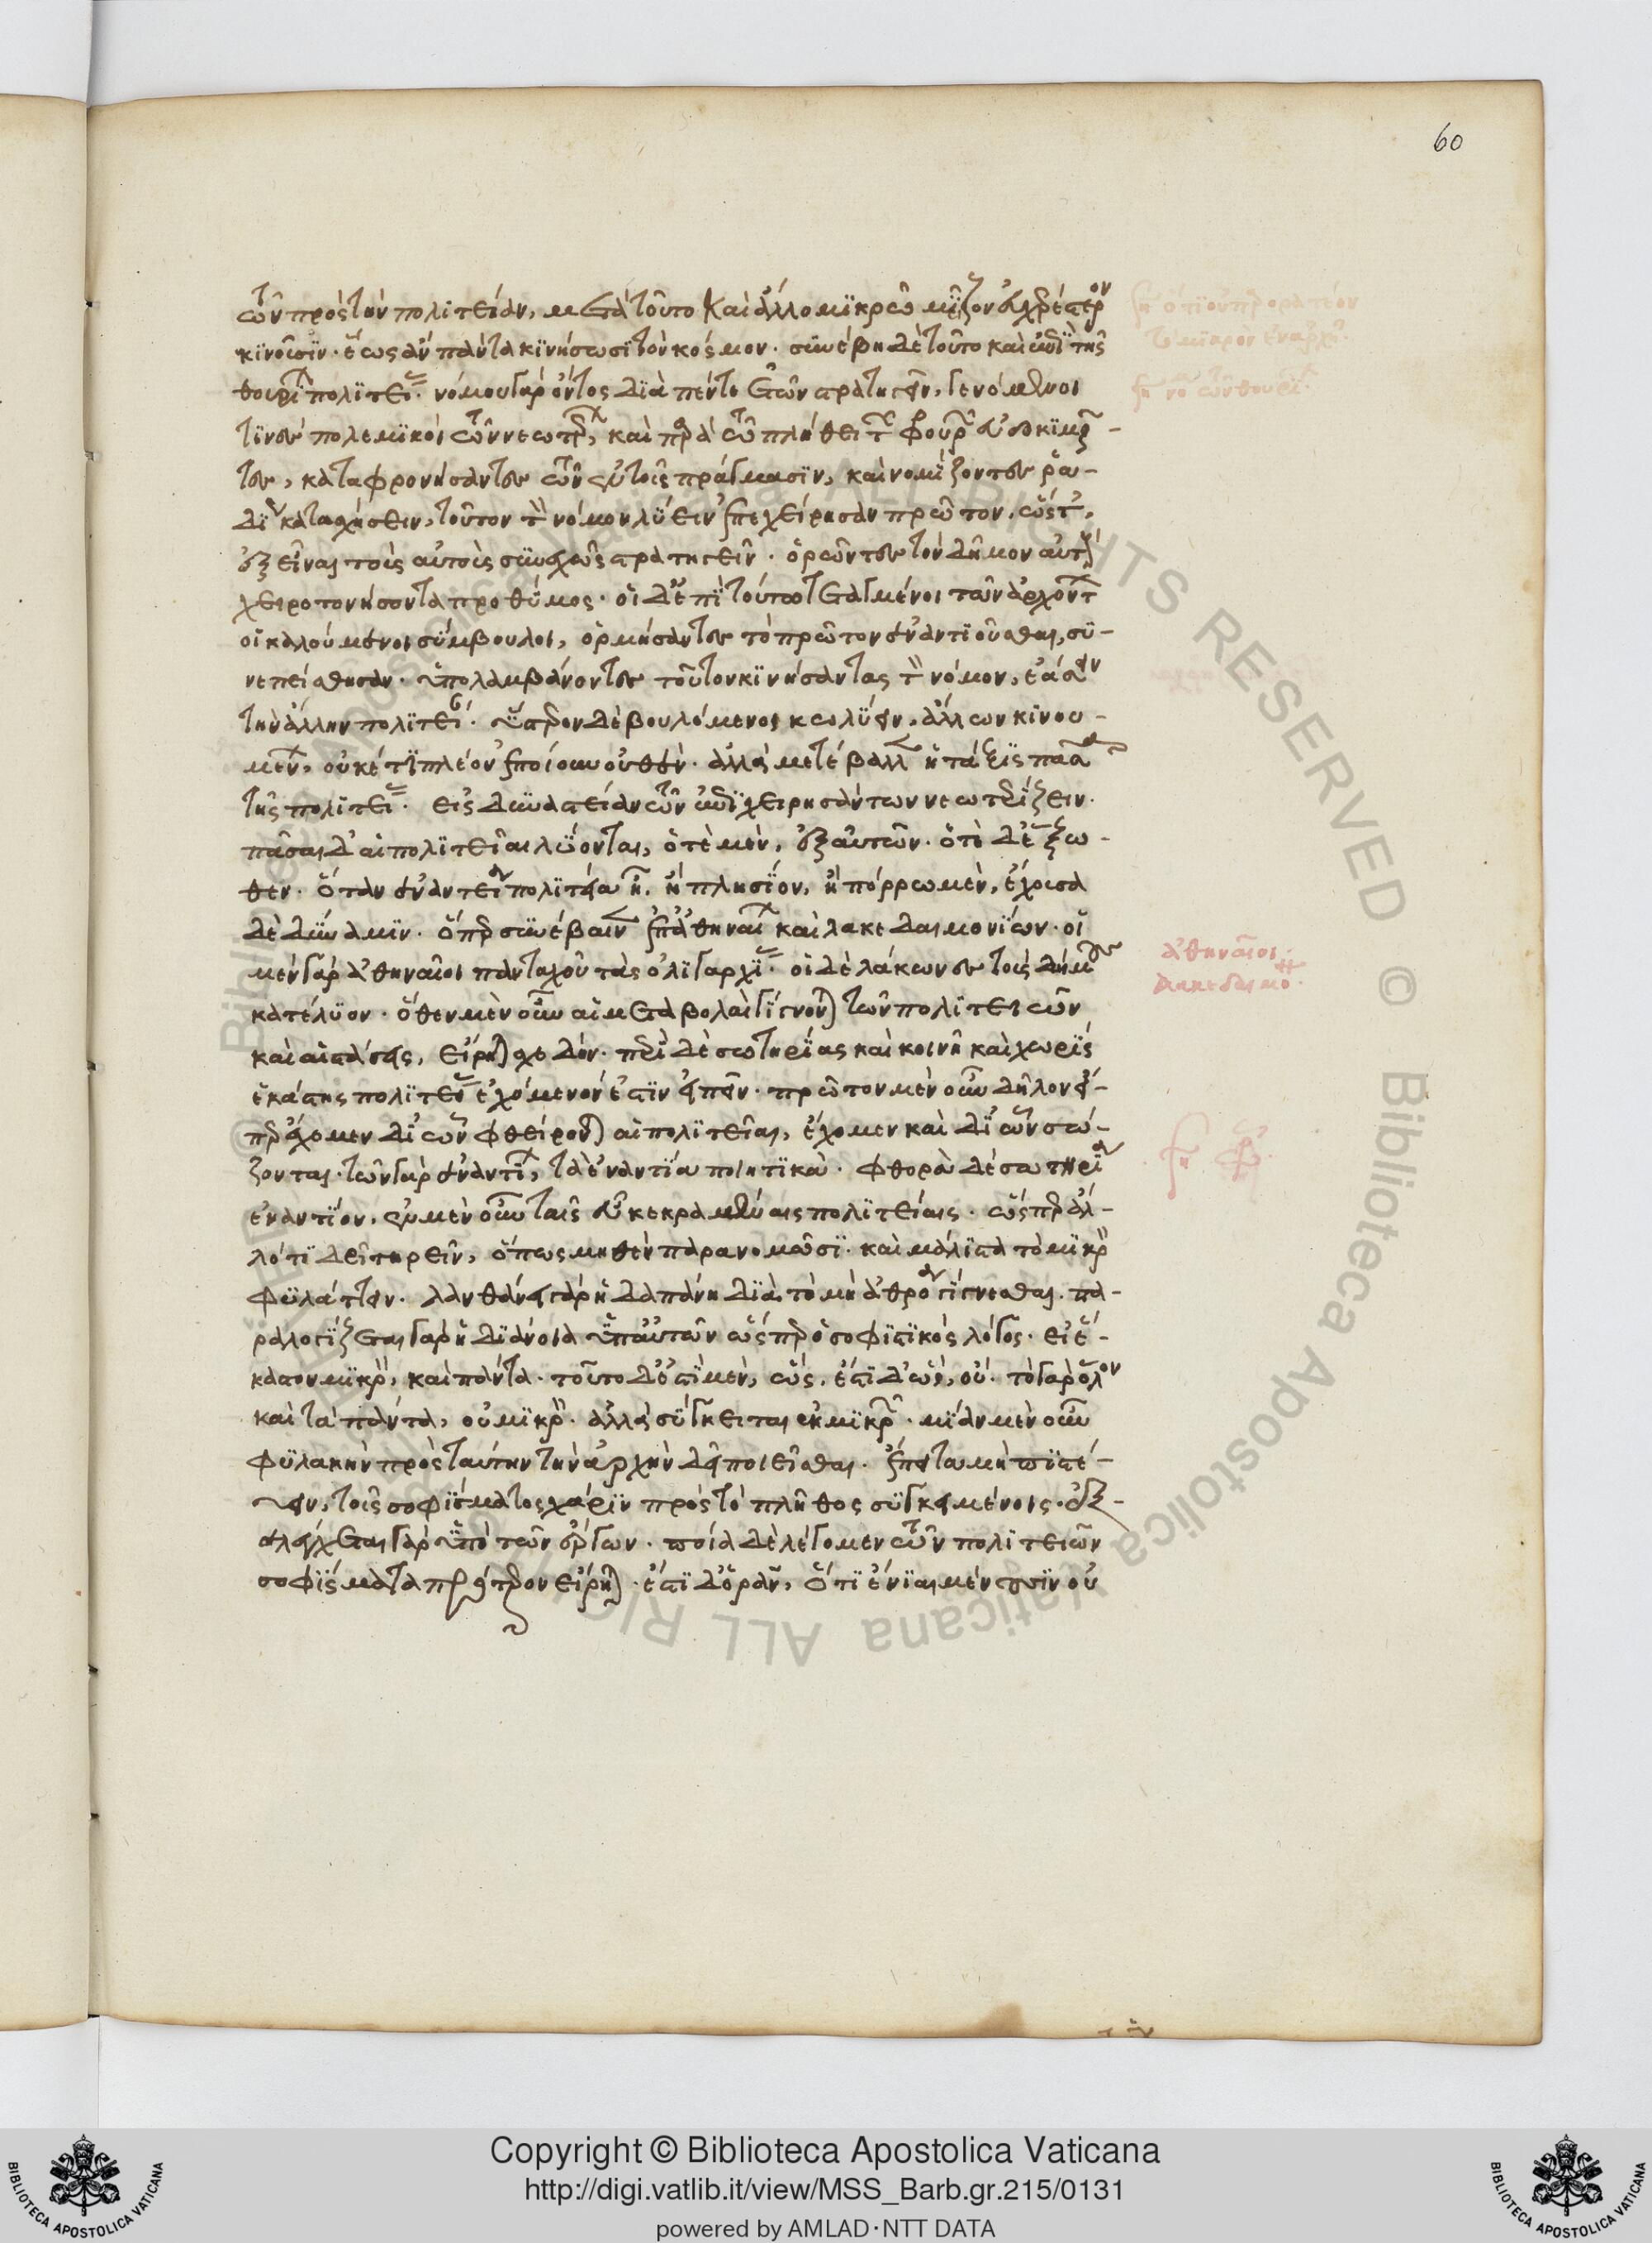 τῶν πρὸς τὴν πολιτείαν, μετὰ τοῦτο καὶ ἄλλο μϊκρῶ μεῖζον εὐχερέστερον
κϊνοῦσϊν· ἕως ἂν πάντα κϊνήσωσϊ τὸν κόσμον. συνέβη δὲ τοῦτο καὶ ἐπὶ τῆς
θουρίων πολϊτείας· νόμου γὰρ ὄντος δϊὰ πέντε ἐτῶν στρατηγεῖν, γενόμενοι
τϊνὲς πολεμϊκοὶ τῶν νεωτέρων, καὶ παρὰ τῶ πλήθει τῶν φρουρῶν εὐδοκϊμοῦν-
τες, καταφρονήσαντες τῶν ἐν τοῖς πράγμασϊν, καὶ νομΐζοντες ῥα-
δΐως κατασχήσειν, τοῦτον τὸν νόμον λύειν ἐπεχείρησαν πρῶτον. ὥστ'
ἐξεῖναι τοὺς αὐτοὺς συνεχῶς στρατηγεῖν. ὁρῶντες τὸν δῆμον αὐτοὺς
χειροτονήσοντα προθύμος· οἱ δ' ἐπῒ τούτω τεταγμένοι τῶν ἀρχόντων
οἱ καλούμενοι σύμβουλοι, ὁρμήσαντες τὸ πρῶτον ἐναντϊοῦσθαι, συ-
νεπείσθησαν· ὑπολαμβάνοντες τοῦτον κϊνήσαντας τὸν νόμον, ἐάσειν
τὴν ἄλλην πολϊτείαν· ὕστερον δὲ βουλόμενοι κωλύειν, ἄλλων κϊνου-
μένων, οὐκέτϊ πλέον ἐποίουν οὐθέν· ἀλλὰ μετέβαλλεν ἡ τάξϊς πᾶσα
τῆς πολϊτείας· εἰς δυναστείαν τῶν ἐπϊχειρησάντων νεωτερΐζειν.
πᾶσαι δ' αἱ πολϊτεῖαι λύονται, ὁτὲ μὲν, ἐξ αὐτῶν· ὁτὲ δ' ἔξω-
θεν· ὅταν ἐναντεία πολϊτεία ἦ, ἢ πλησΐον, ἢ πόρρω μὲν, ἔχουσα
δὲ δύναμϊν. ὅπερ συνέβαινεν ἐπ' ἀθηναίων καὶ λακεδαιμονΐων· οἱ
μὲν γὰρ ἀθηναῖοι πανταχοῦ τὰς ὀλϊγαρχΐας· οἱ δὲ λάκωνες τοὺς δήμους
κατέλυον· ὅθεν μὲν οὖν αἱ μεταβολαὶ γΐνονται τῶν πολϊτειῶν
καὶ αἱ στάσεις, εἴρηται σχεδόν. περὶ δὲ σωτηρΐας καὶ κοινῆ καὶ χωρὶς
ἑκάστης πολϊτείας ἐχόμενον ἐστϊν εἰπεῖν. πρῶτον μὲν οὖν δῆλον εἴ-
περ ἔχομεν δι' ὧν φθείρονται αἱ πολϊτεῖαι, ἔχομεν καὶ δι' ὧν σώ-
ζονται· τῶν γὰρ ἐναντΐων, τὰ ἐναντΐα ποιητϊκά· φθορὰ δὲ σωτηρΐα
ἐναντΐον. ἐν μὲν οὖν ταῖς εὖ κεκραμέναις πολϊτείαις. ὥσπερ ἄλ-
λό τϊ δεῖ τηρεῖν, ὅπως μηθὲν παρανομῶσϊ· καὶ μάλϊστα τὸ μϊκρὸν
φυλάττειν. λανθάνει γὰρ ἡ δαπάνη δϊὰ τὸ μὴ ἀθρόα γΐνεσθαι. πα-
ραλογΐζεται γὰρ ἡ δϊάνοια ὑπ' αὐτῶν ὥσπερ ὁ σοφϊστϊκὸς λόγος· εἰ ἕ-
καστον μϊκρὸν, καὶ πάντα· τοῦτο δ' ἔστϊ μὲν, ὥς. ἔστϊ δ' ὡς, οὔ. τὸ γὰρ ὅλον
καὶ τὰ πάντα, οὐ μϊκρὸν. ἀλλὰ σύγκειται ἐκ μϊκρῶν. μΐαν μὲν οὖν
φυλακὴν πρὸς ταύτην τὴν ἀρχὴν δεῖ ποιεῖσθαι. ἔπειτα μὴ πϊστεύ-
ειν, τοῖς σοφΐσματος χάρϊν πρὸς τὸ πλῆθος συγκειμένοις. ἐξ-
ελέγχεται γὰρ ὑπὸ τῶν ἔργων. ποῖα δὲ λέγομεν τῶν πολϊτειῶν
σοφΐσματα πρότερον εἴρηται. ἔτϊ δ' ὁρᾶν, ὅτϊ ἔνϊαι μένουσϊν οὐ
ἀθηναῖοι.
λακεδαιμο.
60
Copyright © Biblioteca Apostolica Vaticana
http://digi.vatlib.it/view/MSS_Barb.gr.215/0131
powered by AMLAD·NTT DATA